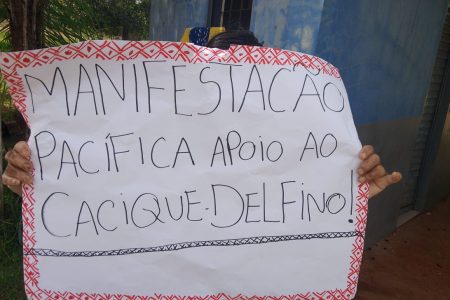 MANIFESTAÇÃO
PACÍFICA APOIO AO
CACIQUE-DELFINO!